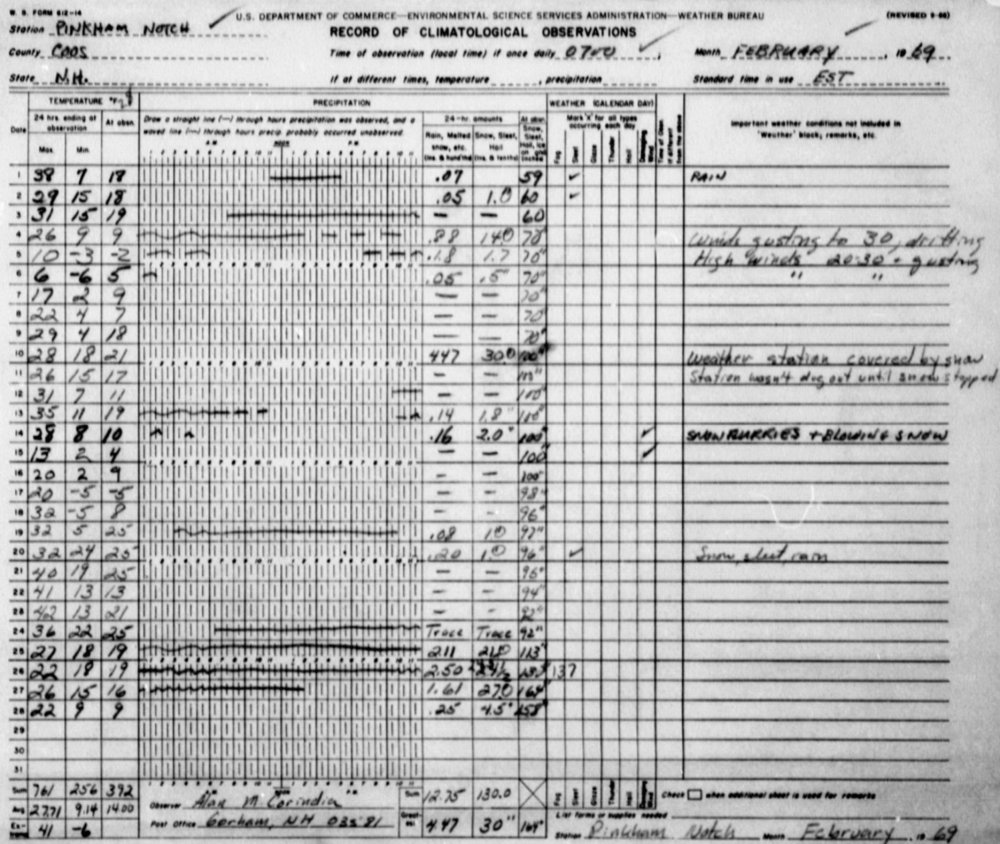 W. B. FORM 612-14
U.S. DEPARTMENT OF COMMERCE—ENVIRONMENTAL SCIENCE SERVICES ADMINISTRATION—WEATHER BUREAU
Station PINKHAM NOTCH
RECORD OF CLIMATOLOGICAL OBSERVATIONS
County COOS
Time of observation (local time) if once daily 0700
Month FEBRUARY, 1969
State N.H.
If at different times, temperature , precipitation
Standard time in use EST
TEMPERATURE °F
PRECIPITATION
WEATHER (CALENDAR DAY)
Date
24 hrs. ending at observation
At obsn.
Draw a straight line (—) through hours precipitation was observed, and a
waved line (~) through hours precip. probably occurred unobserved.
24-hr. amounts
At obsn.
Mark 'X' for all types occurring each day
Important weather conditions not included in 'Weather' block; remarks, etc.
Max. Min.
A.M. NOON P.M.
Rain, Melted snow, etc. (Ins. & hundths)
Snow, Sleet, Hail (Ins. & tenths)
Snow, Sleet, Hail, Ice on gnd Inches
Fog Sleet Glaze Thunder Hail Damaging Wind
1 38 7 18 .07 59 RAIN
2 29 15 18 .05 1.0 60
3 31 15 19 — — 60
4 26 9 9 .88 14.0 70" Winds gusting to 30, drifting
5 10 -3 -2 .18 1.7 70" High winds 20-30 - gusting
6 6 -6 5 .05 .5" 70" " "
7 17 2 9 — — 70"
8 22 4 7 — — 70"
9 29 4 18 — — 70"
10 28 18 21 4.47 30.0 100" Weather station covered by snow
11 26 15 17 — — Station wasn't dug out until snow stopped
12 31 7 11 — — 100"
13 35 11 19 .14 1.8" 100"
14 28 8 10 .16 2.0" 100" SNOW FLURRIES + BLOWING SNOW
15 13 2 4 — — 100"
16 20 2 9 — — 100"
17 20 -5 -5 — — 98"
18 32 -5 8 — — 96"
19 32 5 25 .08 1.0 97"
20 32 24 25 .20 1.0 96" Snow, sleet, rain
21 40 19 25 — — 95"
22 41 13 13 — — 94"
23 42 13 21 — — 92"
24 36 22 25 Trace Trace 92"
25 27 18 19 2.11 21.0 113"
26 22 18 19 2.50 137
27 26 15 16 1.61 27.0 164"
28 22 9 9 .25 4.5" 158"
29
30
31
Sum 761 256 392
Observer Alan M. Corindia
Sum 12.75 130.0
Fog Sleet Glaze Thunder Hail Damaging Wind
Check when additional sheet is used for remarks
Avg. 27.71 9.14 14.00
Post Office Gorham, NH 03581
List forms or supplies needed
Extreme 41 -6
Greatest 4.47 30" 164"
Station Pinkham Notch Month February, 1969